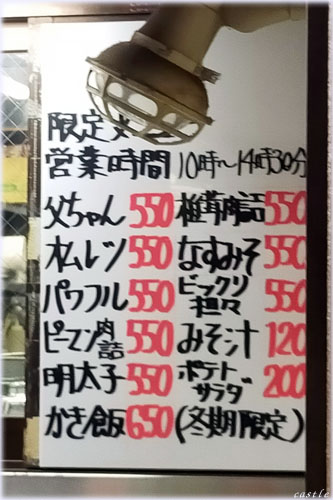 限定メ
営業時間 10時〜14時30分
父ちゃん 550 椎茸肉詰 550
オムレツ 550 なすみそ 550
パワフル 550 ビックリ担々 550
ピーマン肉詰 550 みそ汁 120
明太子 550 ポテトサラダ 200
かき飯 650 (冬期限定)
castle